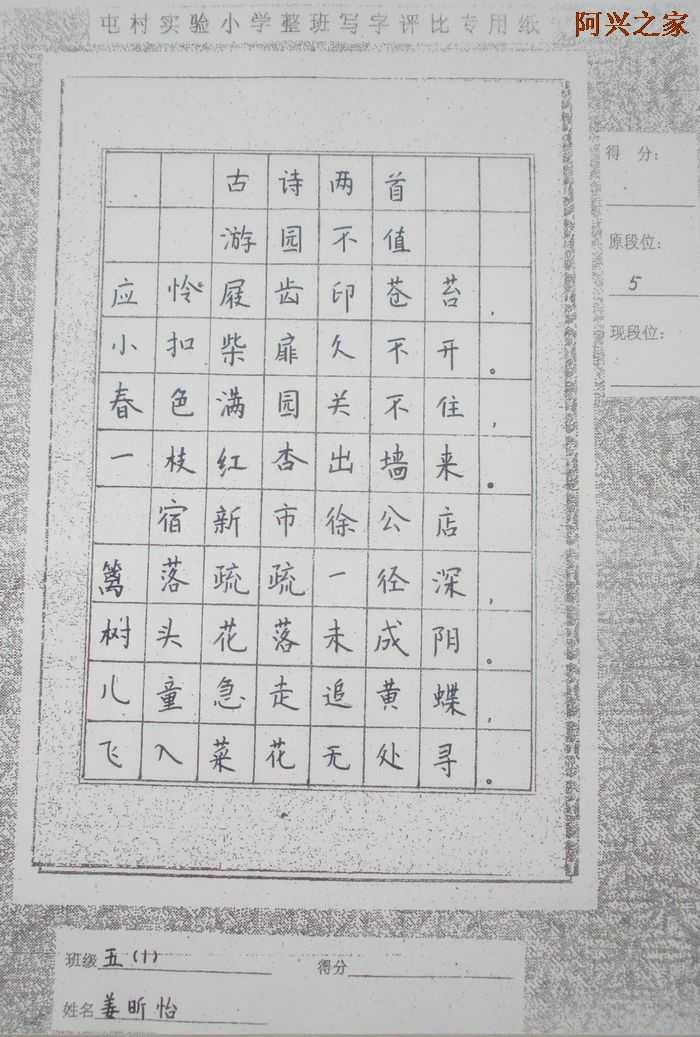 屯村实验小学整班写字评比专用纸
阿兴之家
古诗两首
游园不值
应怜屐齿印苍苔，
小扣柴扉久不开。
春色满园关不住，
一枝红杏出墙来。
宿新市徐公店
篱落疏疏一径深，
树头花落未成阴。
儿童急走追黄蝶，
飞入菜花无处寻。
得分：
原段位：
5
现段位：
班级 五（1） 得分
姓名 姜昕怡